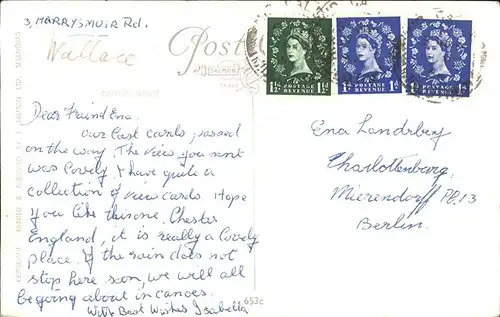 3, MARRYSMUIR Rd.
Wallace
Post
SALMON
Dear Friend Ena.
Our Last cards, passed
on the way. The view you sent
was Lovely. I have quite a
collection of view cards Hope
you like this one. Chester
England, it is really a Lovely
place. If the rain does not
stop here soon, we will all
be going about in canoes.
With Best Wishes Isabella
653c
1½d 1½d
POSTAGE
REVENUE
1d 1d
POSTAGE
REVENUE
1d 1d
POSTAGE
REVENUE
Ena Landsberg
Charlottenburg,
Mierendorff Pl. 13
Berlin.